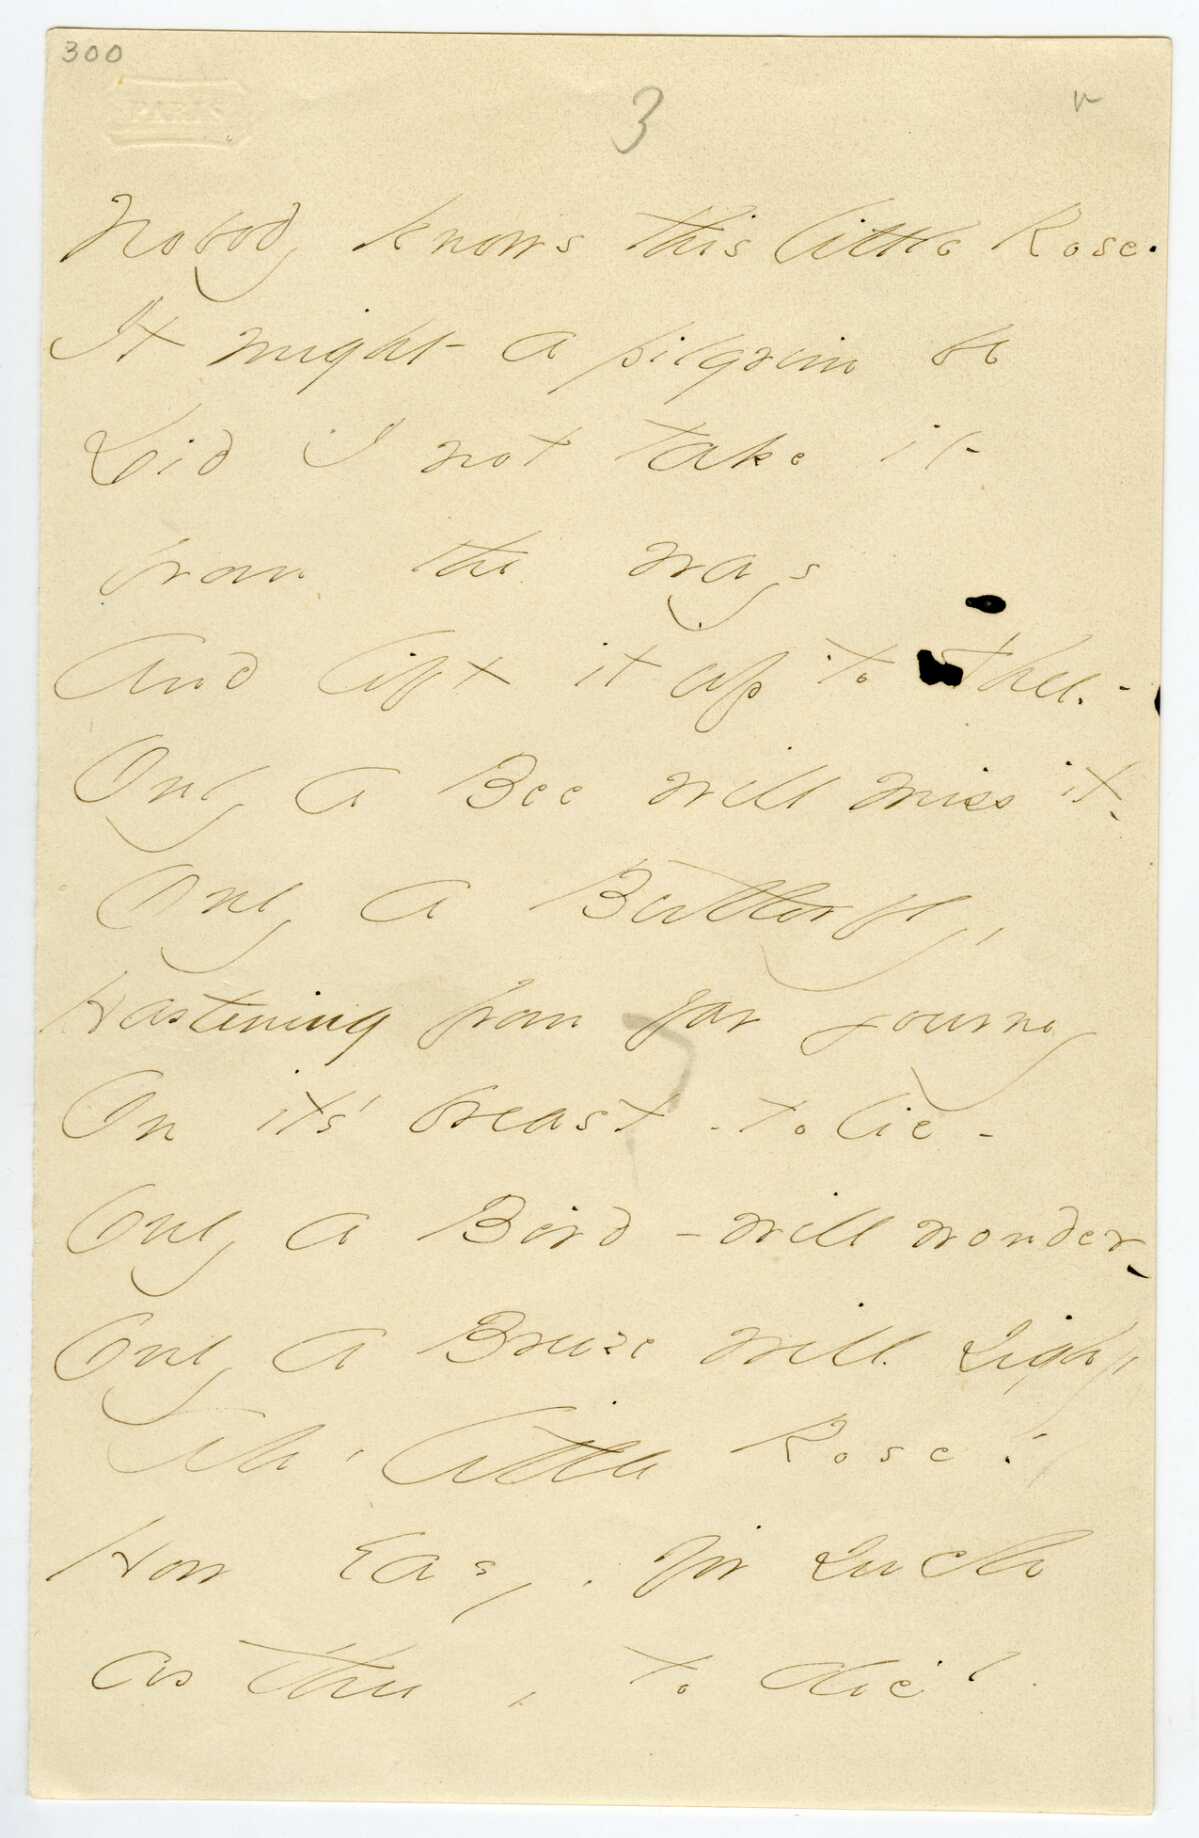 300
PARIS
3
Nobody knows this little Rose.
It might a pilgrim be
Did I not take it
from the ways
And lift it up to thee. -
Only a Bee will miss it -
Only a Butterfly,
Hastening from far journey
On it's breast - to lie -
Only a Bird - will wonder -
Only a Breeze will sigh
Ah, little Rose!
How Easy - for such
as thee, to die!